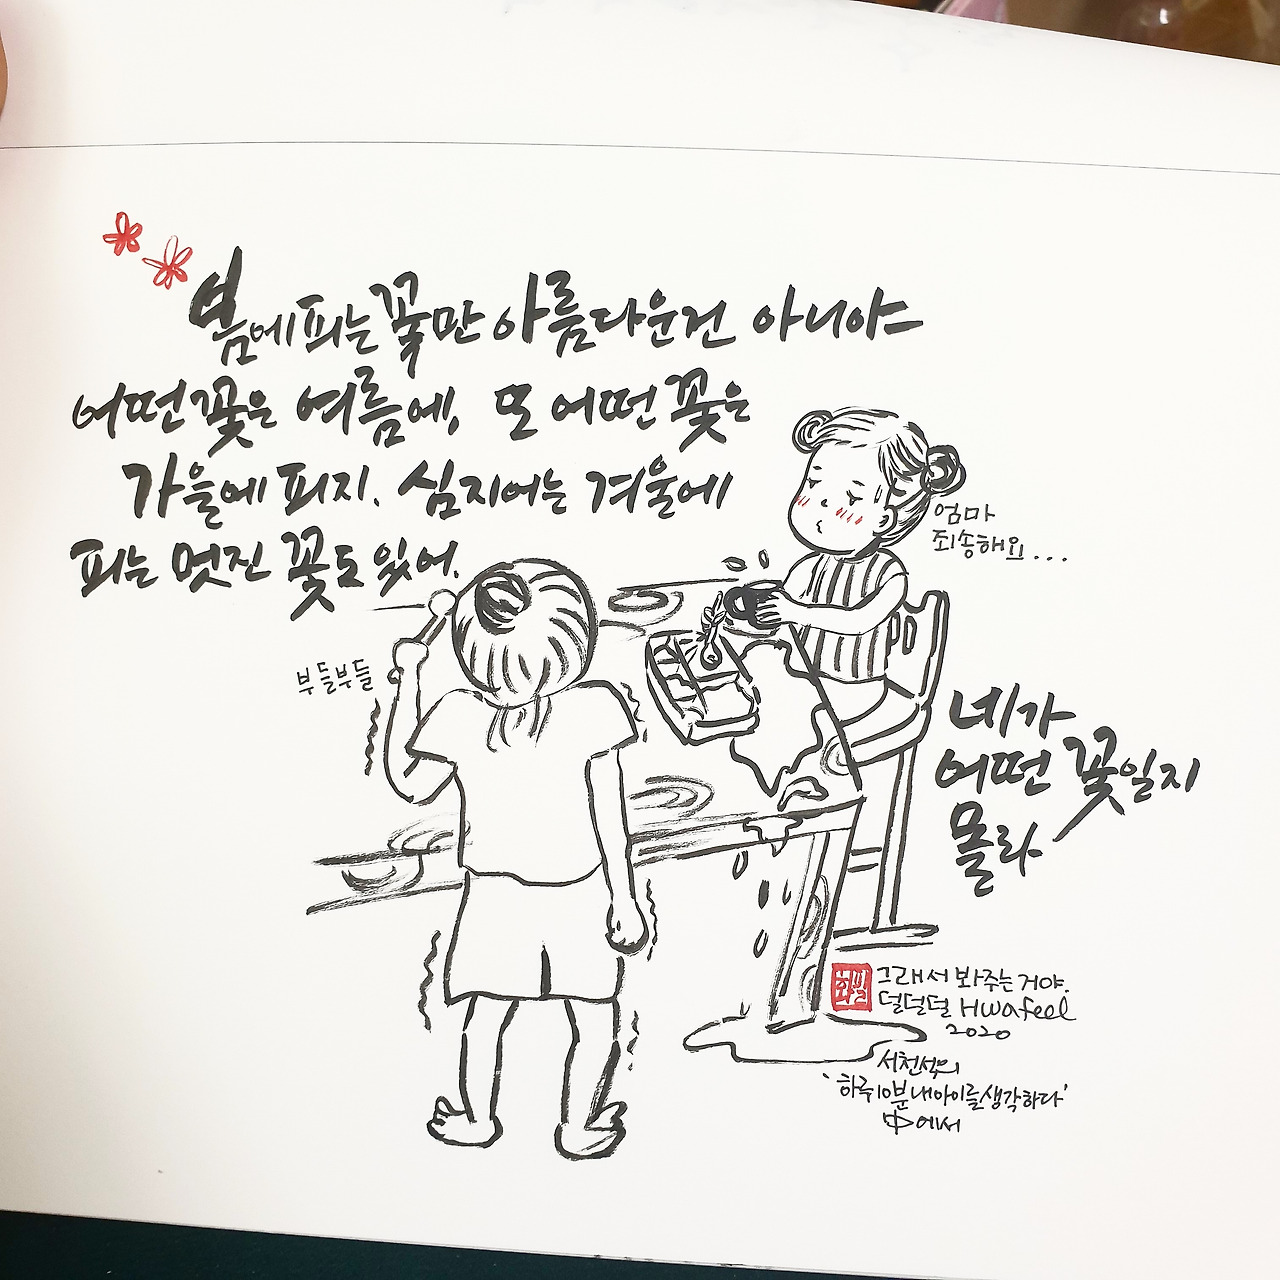 봄에 피는 꽃만 아름다운건 아니야
어떤 꽃은 여름에, 또 어떤 꽃은
가을에 피지. 심지어는 겨울에
피는 멋진 꽃도 있어.
엄마
죄송해요...
부들부들
네가
어떤 꽃일지
몰라
그래서 봐주는거야.
덜덜덜 Hwafeel
2020
서천석의
'하루10분내아이를생각하다'
中에서